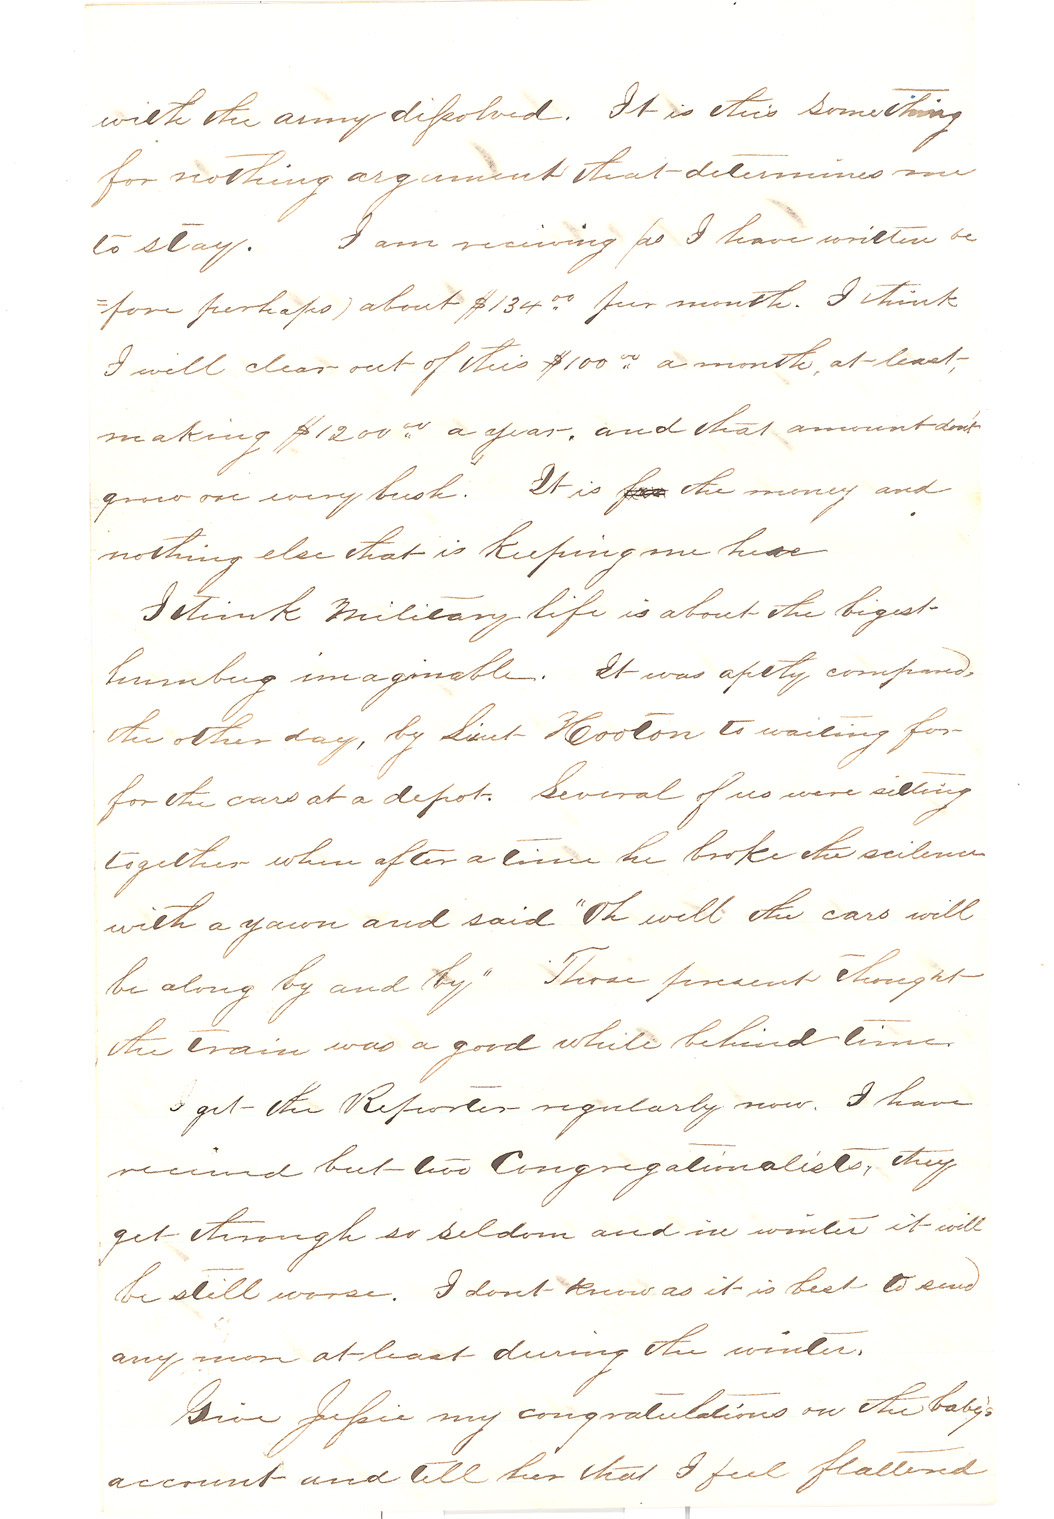 with the army dissolved. It is this something
for nothing argument that determines me
to stay. I am reciving (as I have written be
=fore perhaps) about $134.00 per month. I think
I will clear out of this $100.00 a month, at least,
making $1200.00 a year, and that amount don't
grow on every bush. It is for the money and
nothing else that is keeping me here
I think Military life is about the bigest
humbug imaginable. It was aptly compared,
the other day, by Lieut Hooton to waiting for
for the cars at a depot. Several of us were sitting
together when after a time he broke the scilence
with a yawn and said "Oh well the cars will
be along by and by" Those present thought
the train was a good while behind time.
I get the Reporter regularly now. I have
recieved but two Congregationalists, they
get through so seldom and in winter it will
be still worse. I dont know as it is best to send
any more at least during the winter.
Give Jessie my congratulations on the baby's
account and tell her that I feel flattered